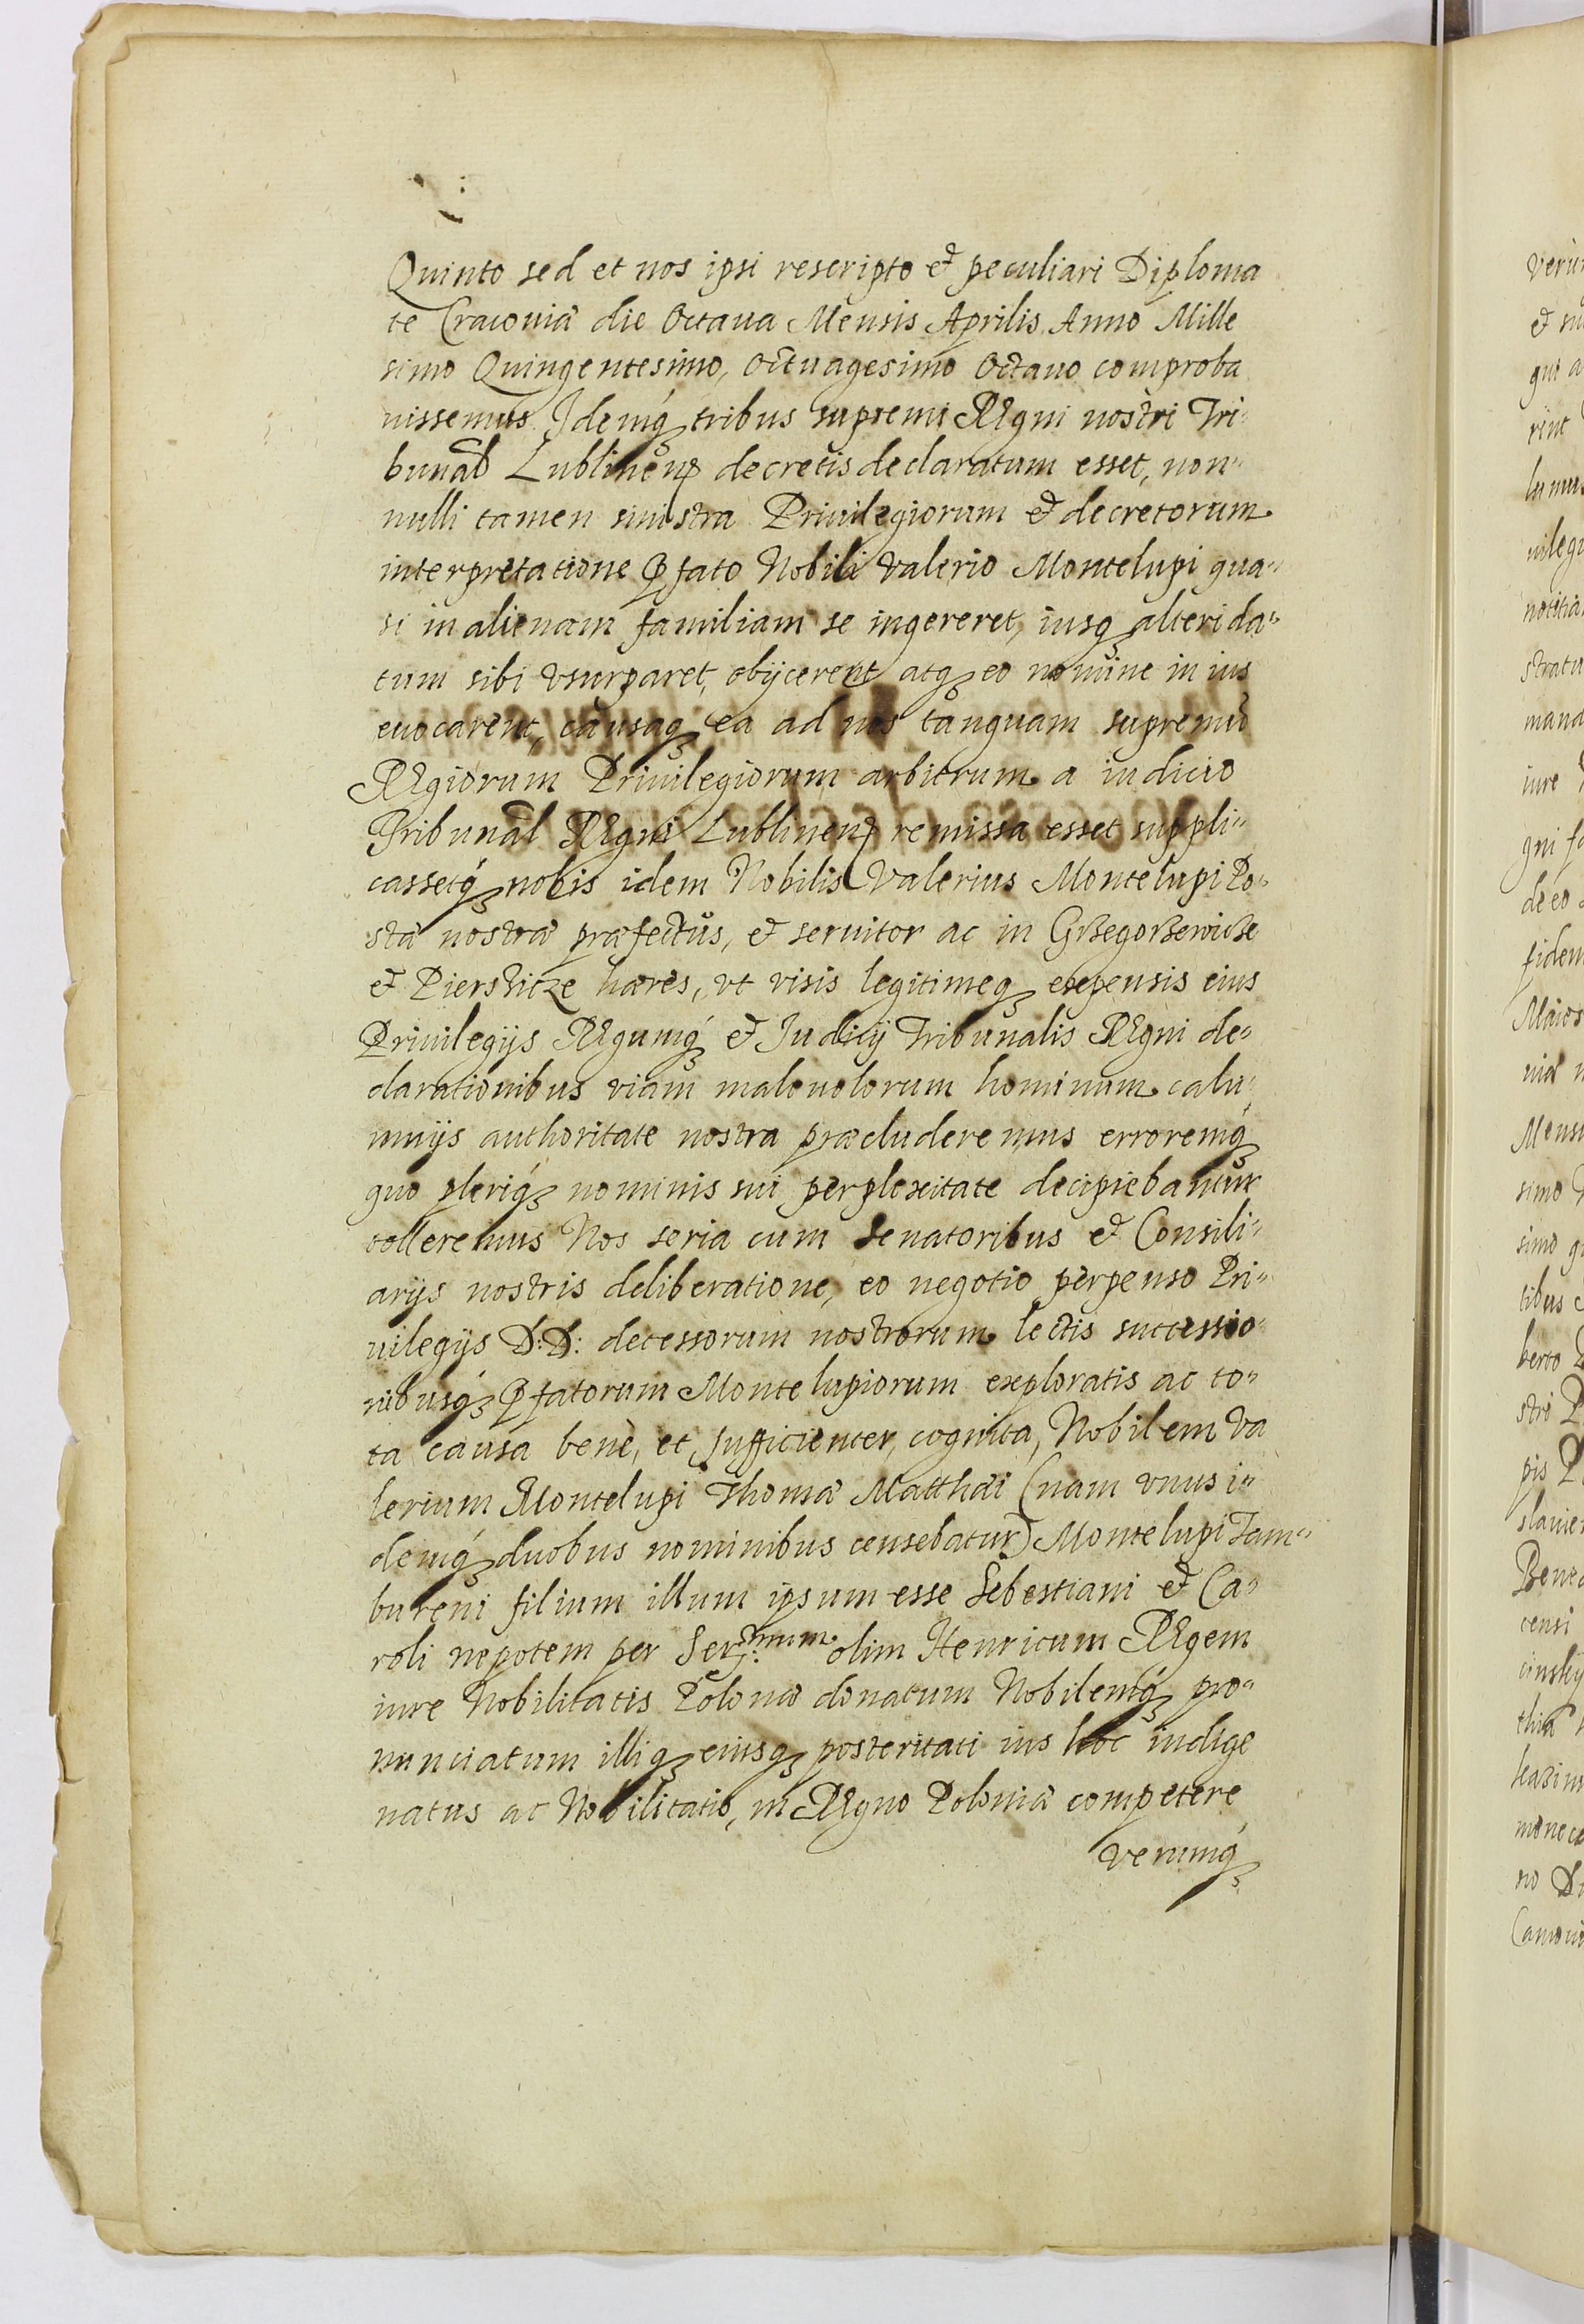 Quinto sed et nos ipsi rescripto et peculiari Diploma
te Cracoviæ die Octaua Mensis Aprilis Anno Mille
simo Quingentesimo, Octuagesimo Octauo comproba
uissemus. Idemq́ꝫ tribus supremi Regni nostri Tri-
bunal Lublineñ decretis declaratum esset, non-
nulli tamen sinistra Priuilegiorum et decretorum
interpretatione p̄fato Nobili Valerio Montelupi qua-
si in alienam familiam se ingereret, iusqꝫ alteri da-
tum sibi vsurparet, obijcerent atqꝫ eo nomine in ius
euocarent, causaqꝫ ea ad nos tanquam supremũ
Regiorum Priuilegiorum arbitrum a iudicio
Tribunal Regni Lublineñ remissa esset suppli-
cassetq́ꝫ nobis idem Nobilis Valerius Montelupi Po-
stæ nostræ præfectus, et seruitor ac in Grzegorzewicze
et Pierszicze hæres, vt visis legitimeqꝫ expensis eius
Priuilegijs Regumq́ꝫ et Iudicij Tribunalis Regni de-
clarationibus viam maleuolorum hominum calu-
mnijs authoritate nostra præcluderemus erroremq́ꝫ
quo pleriq́ꝫ nominis sui perplexitate decipiebantur
tolleremus Nos seria cum Senatoribus et Consili-
arijs nostris deliberatione, eo negotio perpenso Pri-
uilegijs D: D: decessorum nostrorum lectis successio-
nibusq́ꝫ p̄fatorum Montelupiorum exploratis ac to-
ta causa benè, et sufficienter, cognita, Nobilem Va
lerium Montelupi Thomæ Matthæi (nam vnus i-
demq́ꝫ duobus nominibus censebatur) Montelupi Tam-
bureni filium illum ipsum esse Sebestiani et Ca-
roli nepotem per Ser:mum olim Henricum Regem
iure Nobilitatis Polonæ donatum Nobilemq́ꝫ pro-
nunciatum illiqꝫ eiusqꝫ posteritati ius hoc indige
natus ac Nobilitatis, in Regno Poloniæ competere
verumq́ꝫ